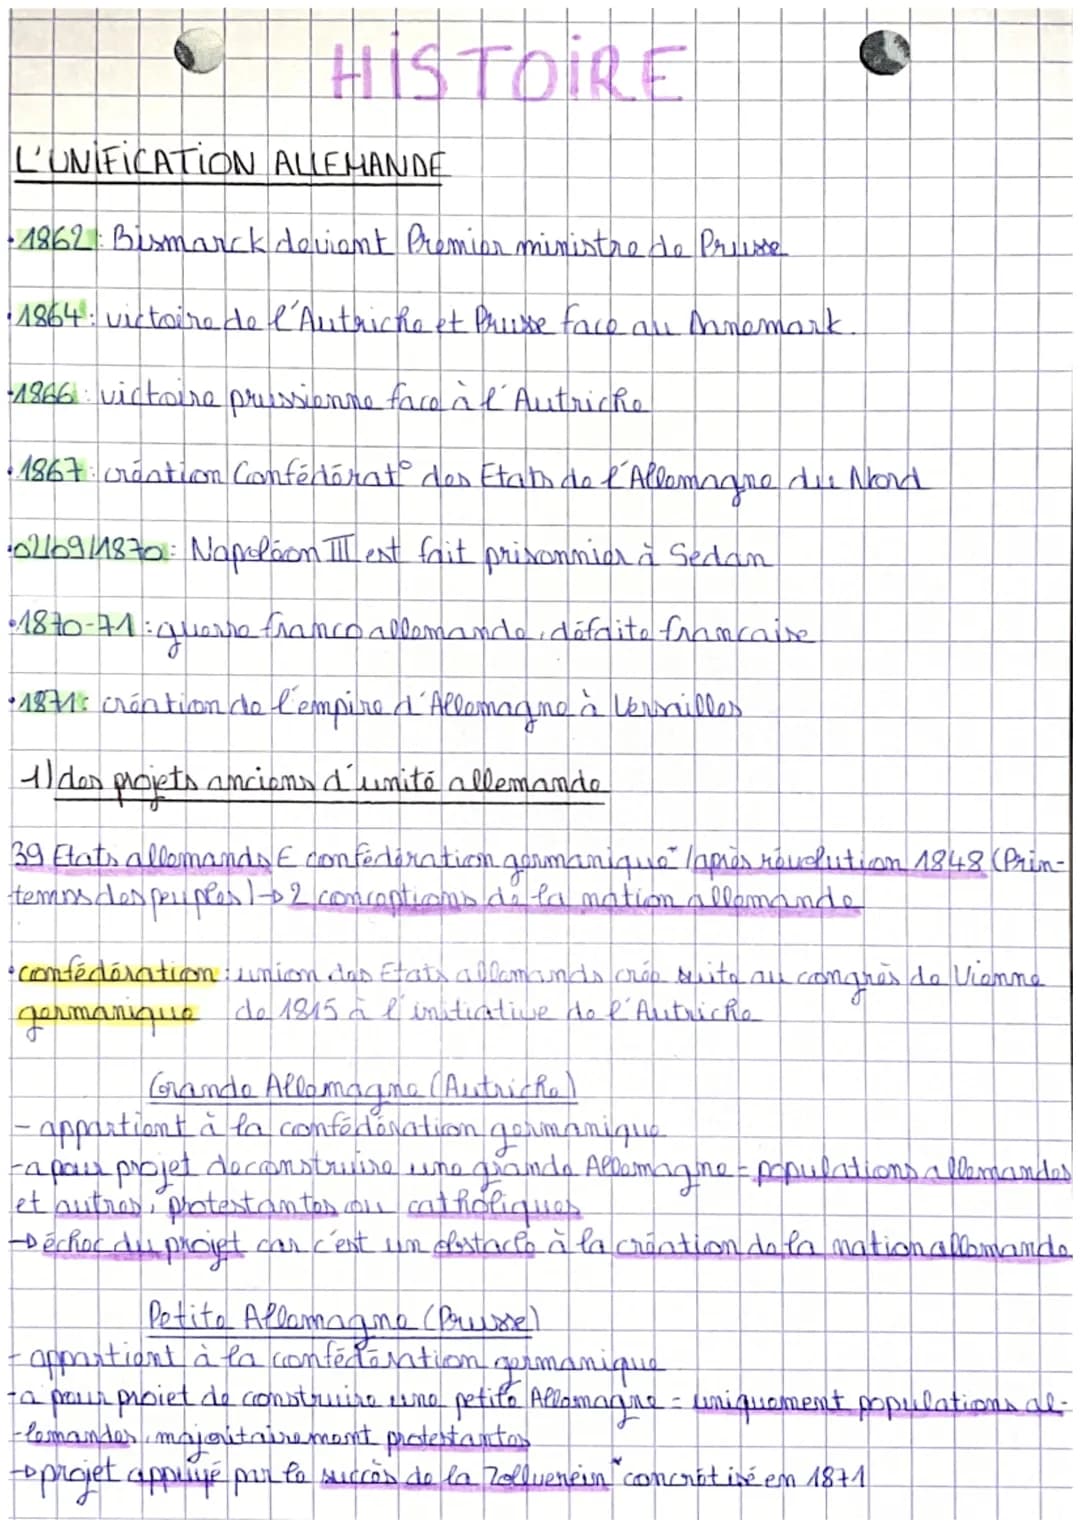 HISTOIRE
L'UNIFICATION ALLEMANDE
• 1862 : Bismarck devient Premier ministre de Prusse
• 1864 : victoire de l'Autriche et Prusse face au Dannemark.
• 1866 : victoire prussienne face à l'Autriche
• 1867 : création Confédérat° des Etats de l'Allemagne du Nord
• 02/09/1870 : Napoléon III est fait prisonnier à Sedan
• 1870-71 : guerre franco allemande, défaite francaise
• 1871 : création de l'empire d'Allemagne à Versailles
1) des projets anciens d'unité allemande
39 Etats allemands E confédération germanique* /après révolution 1848 (Prin-
-temps des peuples) → 2 conceptions de la nation allemande
• confédération : union des Etats allemands crée suite au congrès de Vienne
germanique de 1815 à l'initiative de l'Autriche
Grande Allemagne (Autriche)
- appartient à la confédération germanique
- a pour projet de construire une grande Allemagne = populations allemandes
et autres, protestantes ou catholiques
→ échec du projet car c'est un obstacle à la création de la nation allemande
Petite Allemagne (Prusse)
- appartient à la confédération germanique
- a pour projet de construire une petite Allemagne = uniquement populations al-
-lemandes, majoritairement protestantes
→ projet appuyé par le succès de la Zollverein* concrétisé en 1871